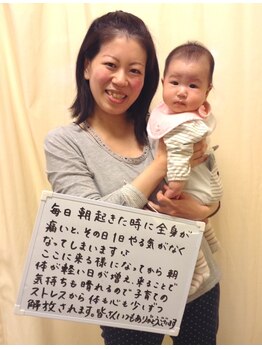 毎日 朝起きた時に全身が
痛いと、その日1日やる気がなく
なってしまいます
ここに来る様になってから 朝
体が軽い日が増え、来ることで
気持ちも晴れるので 子育ての
ストレスから 体も心も少しずつ
解放されます。いつもありがとうございます